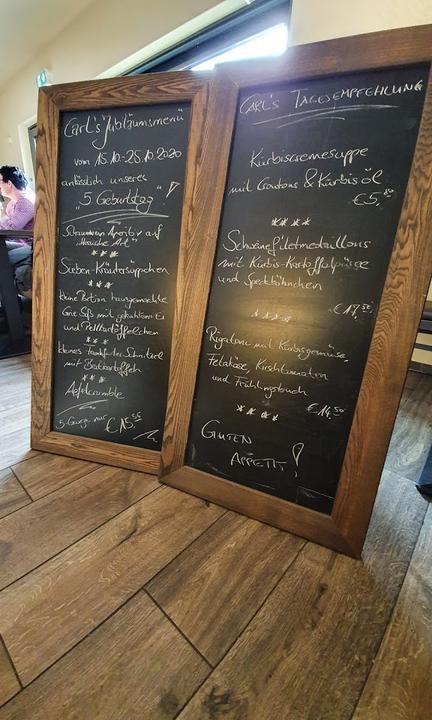 Carl's Jubiläumsmenü
vom 15.10-25.10.2020
anlässlich unseres
"5 Geburtstag"!
Schaumwein Aperitiv auf
"Hessische Art"
***
Sieben-Kräutersüppchen
***
kleine Portion hausgemachte
Grie Soß mit gekochtem Ei
und Pellkartöffelchen
***
kleines Frankfurter Schnitzel
mit Bratkartoffeln
***
Apfelcrumble
5-Gänge nur €15,55
CARL'S TAGESEMPFEHLUNG
Kürbiscremesuppe
mit Croutons & Kürbisöl
€5,80
****
Schweinefiletmedaillons
mit Kürbis-Kartoffelpüree
und Speckböhnchen
€17,50
****
Rigatoni mit Kürbisgemüse,
Fetakäse, Kirschtomaten
und Frühlingslauch
€14,50
****
GUTEN
APPETIT!